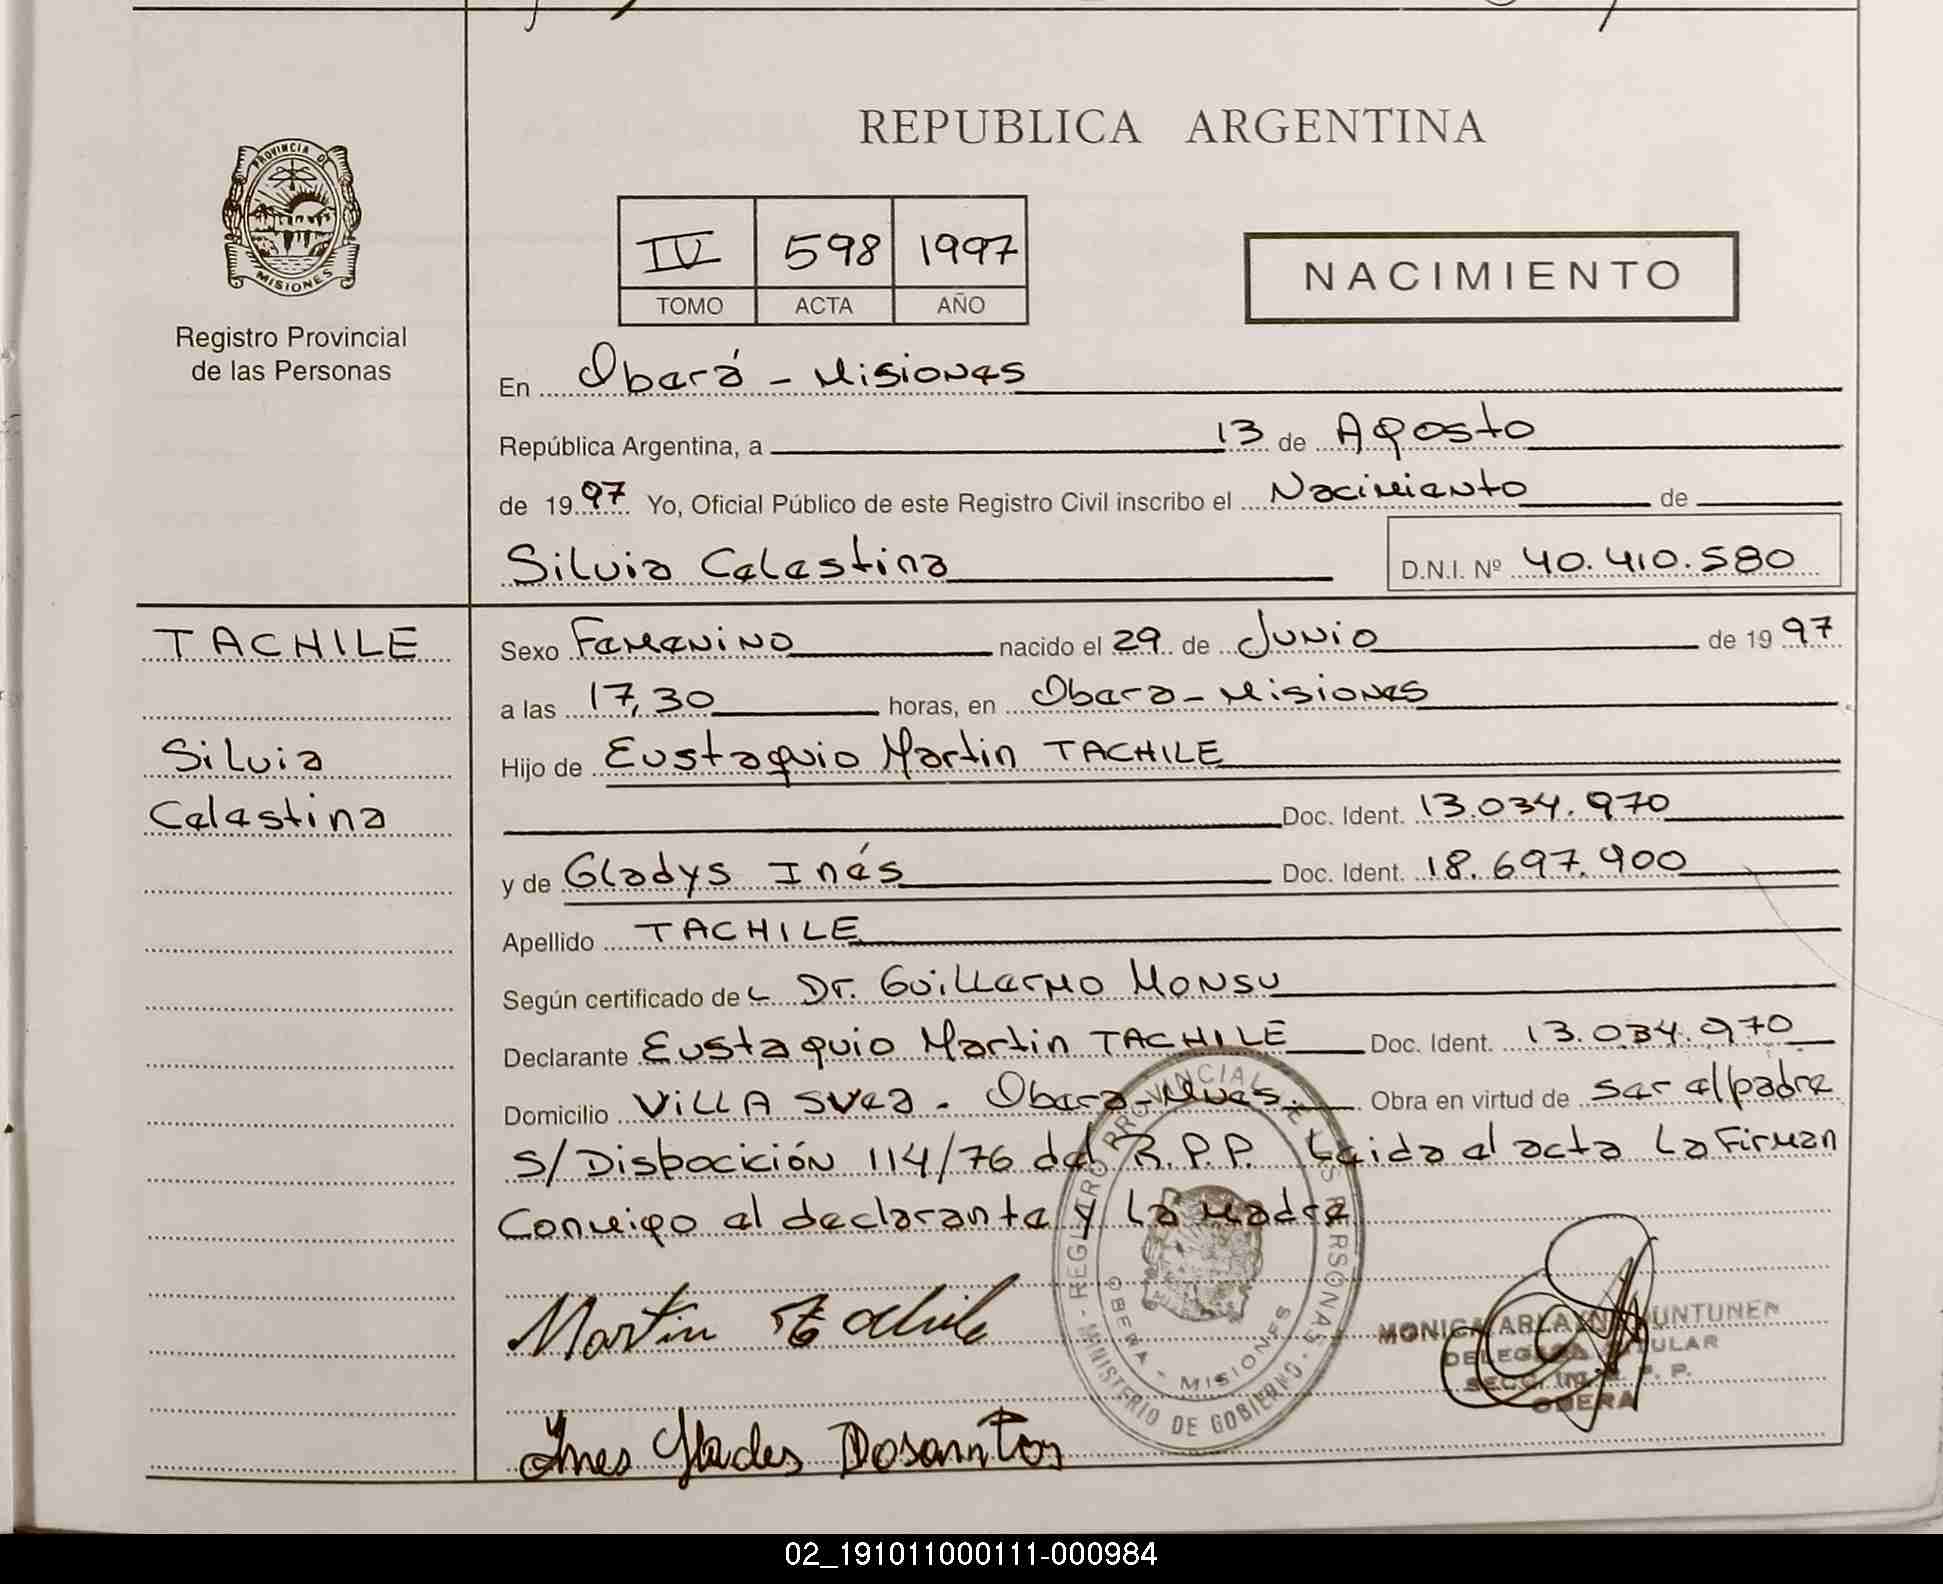 REPUBLICA ARGENTINA
PROVINCIA DE
MISIONES
Registro Provincial
de las Personas
IV 598 1997
TOMO ACTA AÑO
NACIMIENTO
En Oberá - Misiones
República Argentina, a 13 de Agosto
de 1997 Yo, Oficial Público de este Registro Civil inscribo el Nacimiento de
Silvia Celestina D.N.I. Nº 40.410.580
TACHILE
Silvia
Celestina
Sexo Femenino nacido el 29 de Junio de 1997
a las 17,30 horas, en Obera - Misiones
Hijo de Eustaquio Martin TACHILE
Doc. Ident. 13.034.970
y de Gladys Inés Doc. Ident. 18.697.900
Apellido TACHILE
Según certificado de Dr. Guillermo Monsu
Declarante Eustaquio Martin TACHILE Doc. Ident. 13.034.970
Domicilio VILLA SVEA - Obera - Mnes. Obra en virtud de ser el padre
S/Disbocición 114/76 del R.P.P. Leida el acta La Firman
Conmigo el declarante y La Madre
Martin Tachile
Ines Glades Dosanntos
REGISTRO PROVINCIAL DE LAS PERSONAS - MINISTERIO DE GOBIERNO -
OBERA - MISIONES
MONICA PUNTUNEN
DELEGADA TITULAR
SECC. R. P. P.
OBERA
02_191011000111-000984